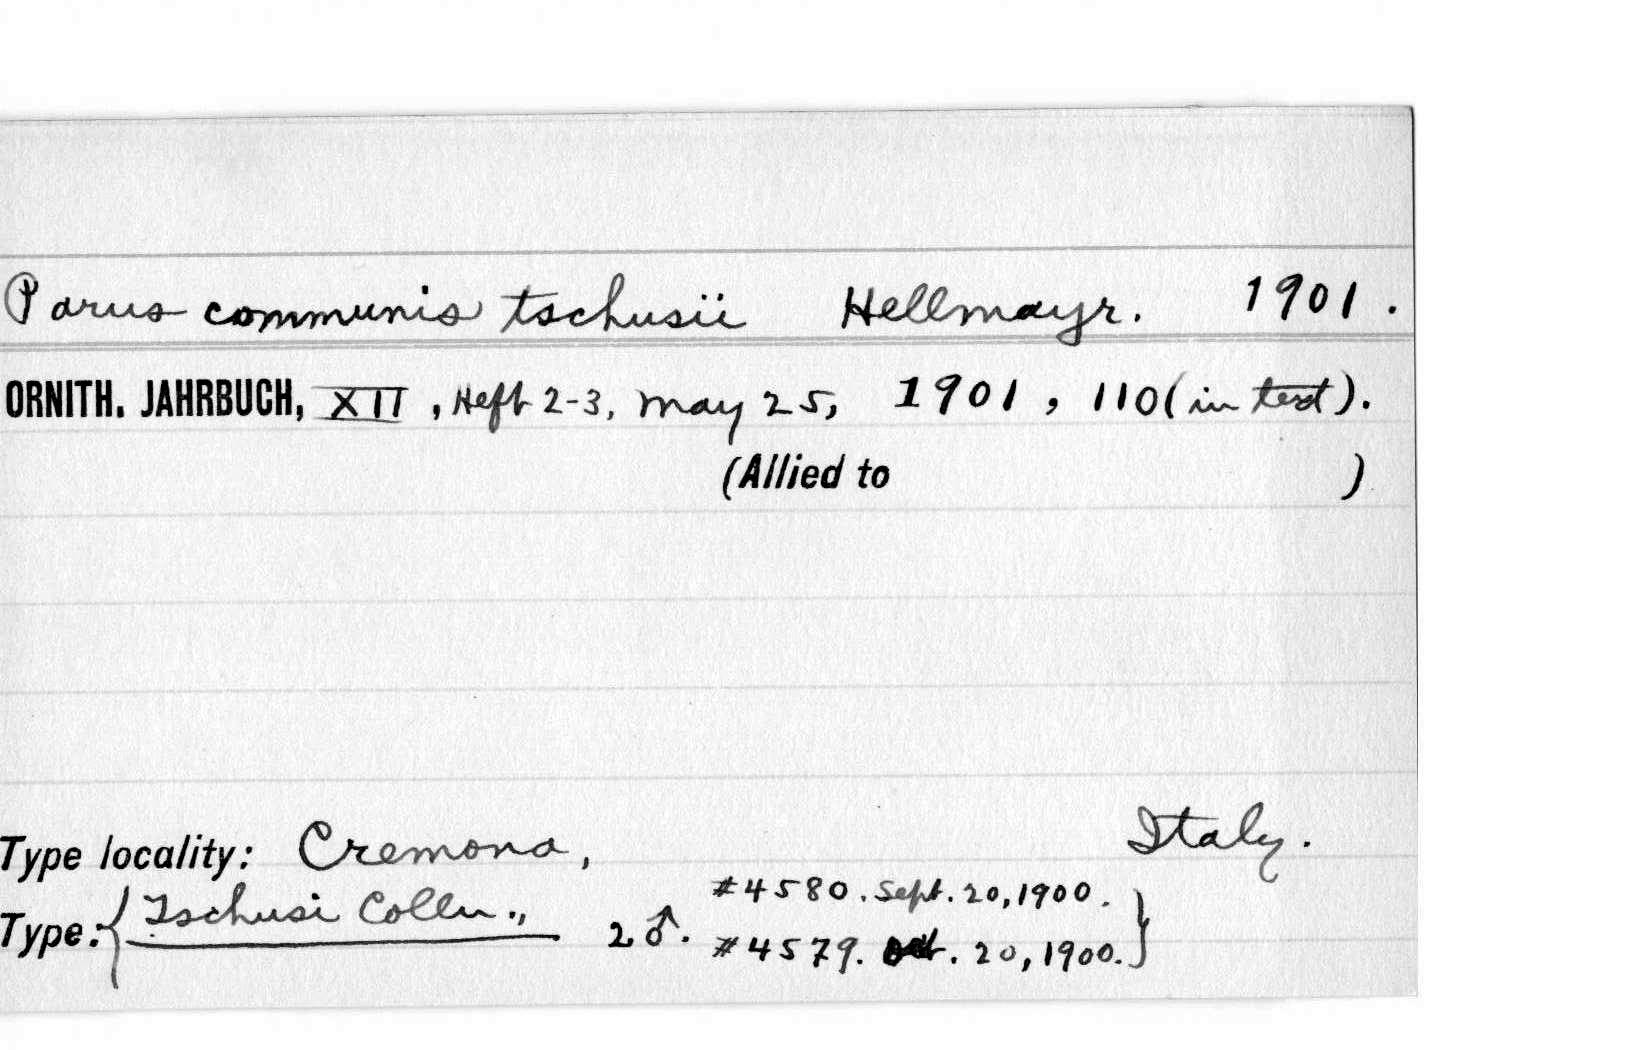 Parus communis tschusii Hellmayr. 1901.
ORNITH. JAHRBUCH, XII, Heft 2-3, May 25, 1901, 110 (in text).
(Allied to )
Type locality: Cremona, Italy.
#4580. Sept. 20, 1900.
Type: Tschusi Colln., 2♂.
#4579. Oct. 20, 1900.